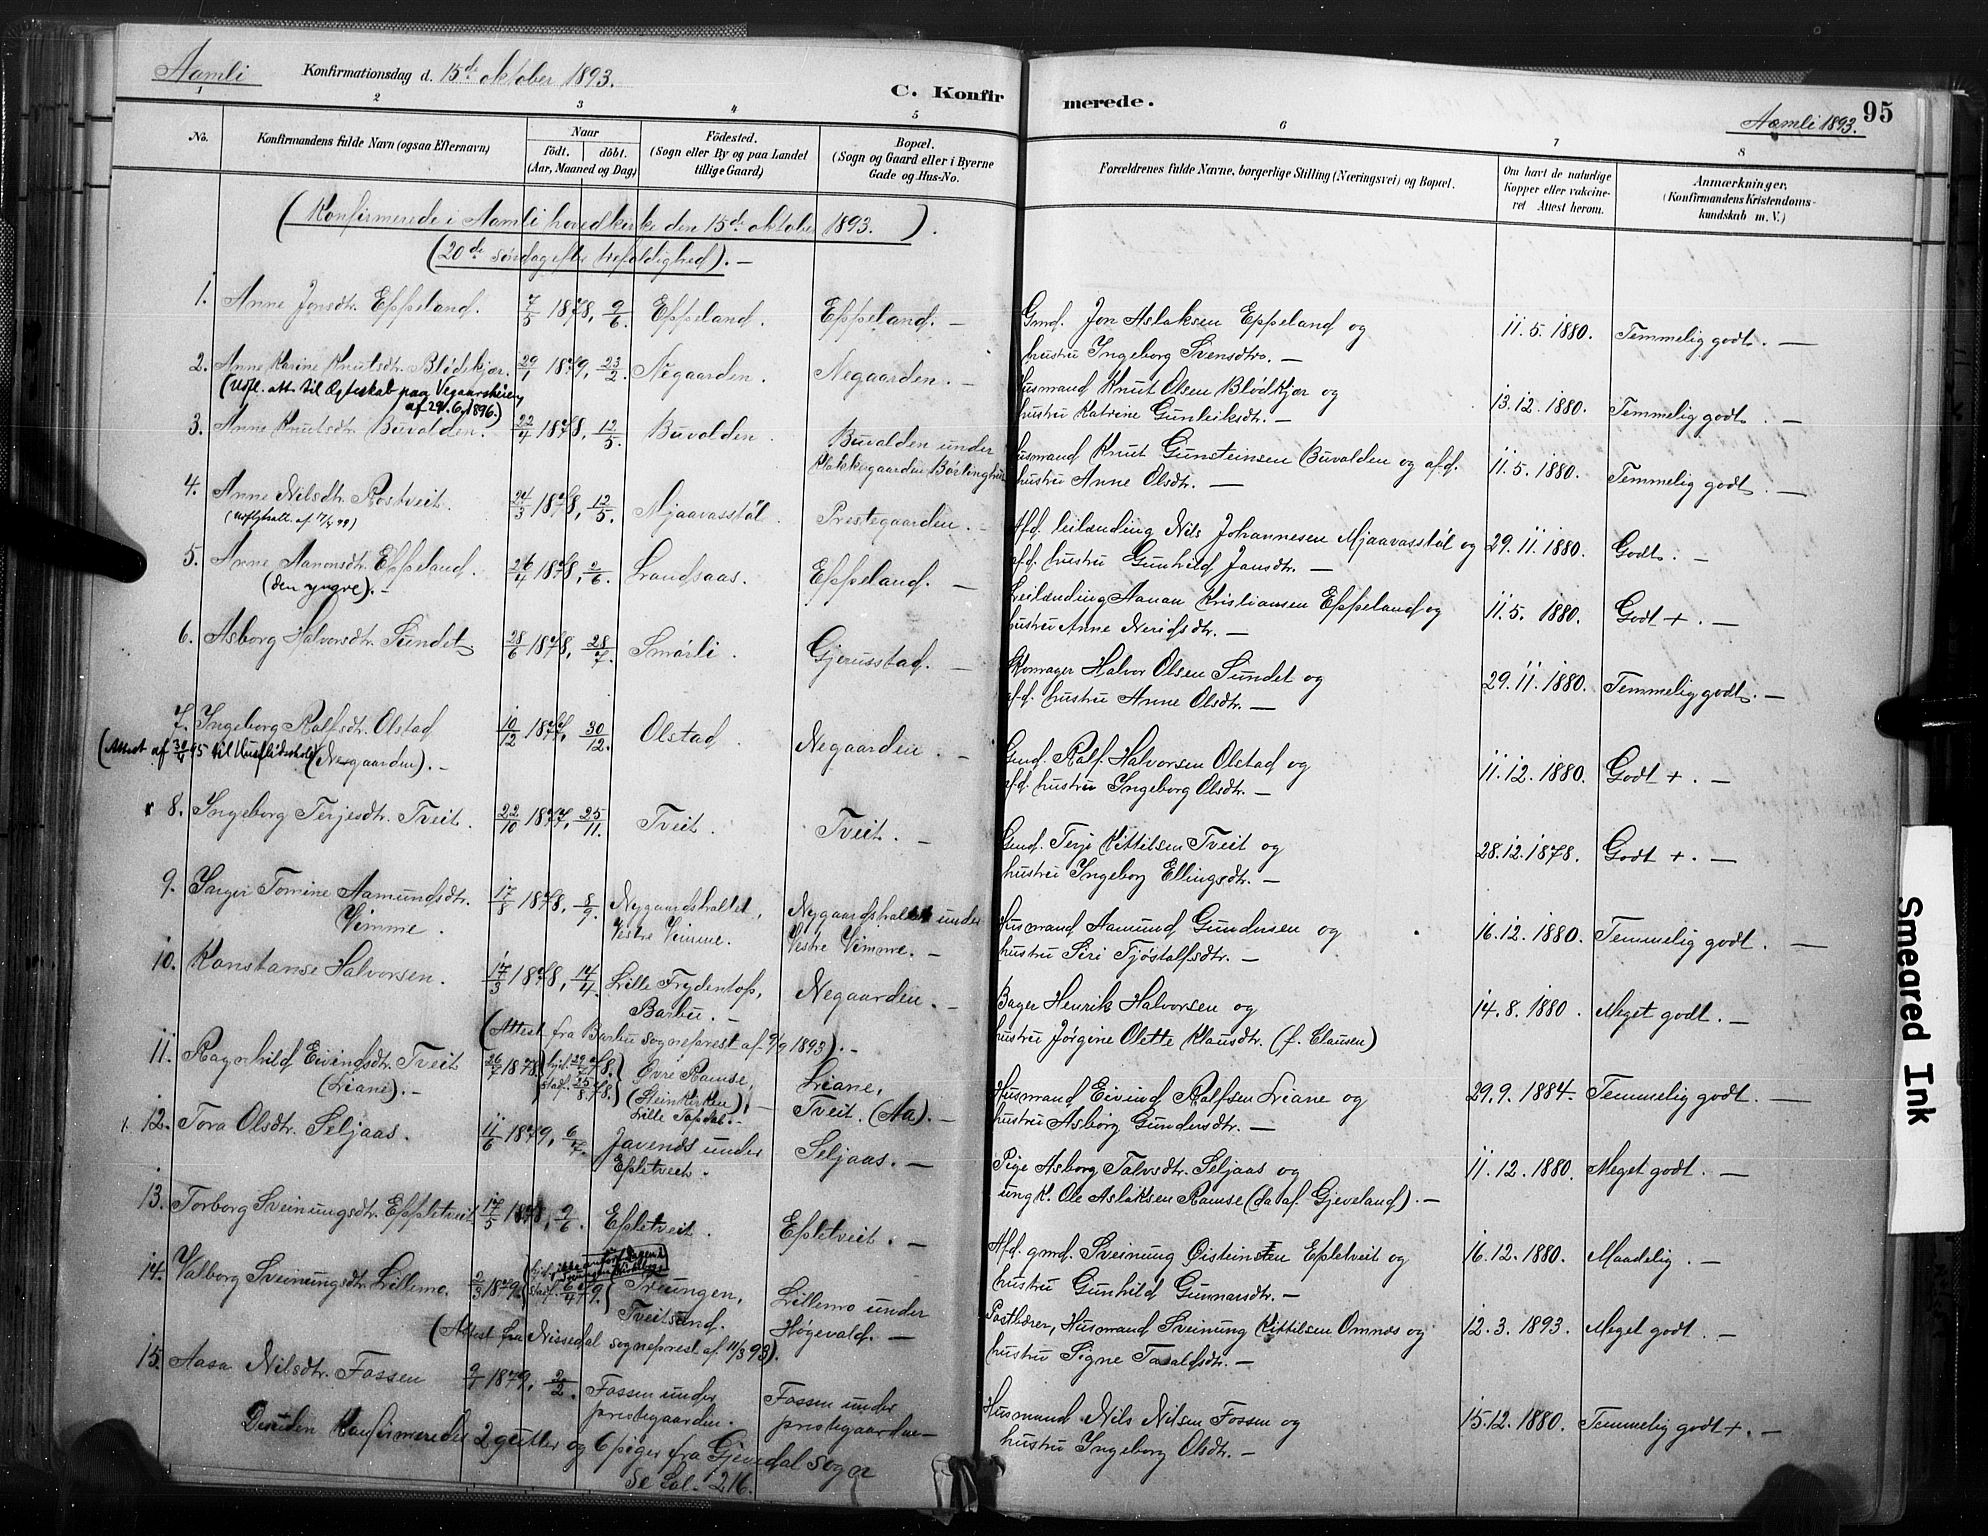 Aamli Konfirmationsdag d. 15de oktober 1893.
C. Konfirmerede.
95
Aamli 1893.
1 2 3 4 5 6 7 8
No.
Konfirmandens fulde Navn (ogsaa Efternavn)
Naar
født. døbt.
(Aar, Maaned og Dag)
Fødested.
(Sogn eller By og paa Landet
tillige Gaard)
Bopæl.
(Sogn og Gaard eller i Byerne
Gade og Hus-No.
Forældrenes fulde Navne, borgerlige Stilling (Næringsvei) og Bopæl.
Om havt de naturlige
Kopper eller vakcine-
ret Attest herom.
Anmærkninger,
(Konfirmandens Kristendoms-
kundskab m. V.)
(Konfirmerede i Aamli hovedkirke den 15de oktober 1893.)
(20de søndag efter trefoldighed). —
1. Anne Jonsdtr. Eppeland. 7/5 1878, 9/6. Eppeland. Eppeland. —
Gmd. Jon Aslaksen Eppeland og
hustru Ingeborg Svensdtr. —
11.5.1880. Temmelig godt. —
2. Anne Karine Knutsdtr. Blødkjær. 29/1 1879, 23/2. Negaarden. Negaarden. —
(Uofl. att. til Ægteskab paa Vegaarsheien
af 29.6.1896.)
Husmand Knut Olsen Blødkjær og
hustru Katrine Gunleiksdtr. —
13.12.1880. Temmelig godt. —
3. Anne Knutsdtr. Buvolden. 22/4 1878, 12/5. Buvolden. Buvolden under
Klakkegaarden
Husmand Knut Gunsteinsen Buvolden og afd.
hustru Anne Olsdtr. —
11.5.1880. Temmelig godt. —
4. Anne Nilsdtr. Rostveit. 24/3 1878, 12/5. Mjaavasstøl. Prestegaarden. —
Afd. leilænding Nils Johannesen Mjaavasstøl og
afd. hustru Gunhild Jansdtr. —
29.11.1880. Godt. —
5. Anne Aanonsdtr. Eppeland. 26/4 1878, 2/6. Landsaas. Eppeland. —
(den yngre). —
Leilænding Aanan Kristiansen Eppeland og
hustru Anne Neridsdtr. —
11.5.1880. Godt +. —
6. Asborg Halvorsdtr. Sundet 28/6 1878, 28/7. Smørli. Gjerusstad. —
Halvor Olsen Sundet og
afd. hustru Anne Olsdtr. —
29.11.1880. Temmelig godt. —
7. Ingeborg Ralfsdtr. Olstad 10/12 1877, 30/12. Olstad. Negaarden. —
(Attest af 30/4 95 til Husflidsskole) (Negaarden). —
Gmd. Ralf Halvorsen Olstad og
afd. hustru Ingeborg Olsdtr. —
11.12.1880. Godt +. —
x 8. Ingeborg Terjesdtr. Tveit. 22/10 1877, 25/11. Tveit. Tveit. —
Gmd. Terje Kittilsen Tveit og
hustru Ingeborg Ellingsdtr. —
28.12.1878. Godt +. —
9. Inger Tomine Aamundsdtr.
Vimme. 17/8 1878, 8/9. Nygaardshaltet, Vestre Vimme. Nygaardshaltet under
Vestre Vimme. —
Husmand Aamund Gundersen og
hustru Siri Tjøstalfsdtr. —
16.12.1880. Temmelig godt. —
10. Konstanse Halvorsen. 17/3 1878, 14/4. Lille Frydentop,
Barbu. — Negaarden. —
(Attest fra Barbu sogneprest af 9/9 1893). —
Bager Henrik Halvorsen og
hustru Jørgine Olette Klausdtr. (f. Clausen)
14.8.1880. Meget godt. —
11. Ragnhild Eivindsdtr. Tveit
(Liane). — 26/7 1878. hjd. 29/7 78. stadf. 25/8 78. Øvre Ramse,
(Steinkirken), —
Lille Topdal. — Liane,
Tveit. (Aa). —
Husmand Eivind Ralfsen Liane og
hustru Asborg Gundersdtr. —
29.9.1884. Temmelig godt. —
12. Tora Olsdtr. Seljaas. 11/6 1879, 6/7. Javends under
Epletveit. Seljaas. —
Pige Asborg Talvsdtr. Seljaas og
ungk. Ole Aslaksen Ramse (da af Gjeveland). —
11.12.1880. Meget godt. —
13. Torborg Sveinungsdtr. Eppletveit 17/5 1878, 9/6. Epletveit. Epletveit. —
Afd. gmd. Sveinung Øisteinsen Epletveit og
hustru Gunhild Gunnarsdtr. —
16.12.1880. Maadelig. —
14. Valborg Sveinungsdtr. Lillemo. 2/3 1879. Treungen,
Tveitsund. Lillemo under
Høgevold. —
(Attest fra Nissedal sogneprest af 11/3 93).
Postbærer, Husmand Sveinung Kittilsen Omnæs og
hustru Signe Taraldsdtr. —
12.3.1893. Meget godt. —
15. Aasa Nilsdtr. Fossen 9/1 1879, 2/2. Fossen under
prestegaarden. Fossen under
prestegaarden —
Husmand Nils Nilsen Fossen og
hustru Ingeborg Olsdtr. —
15.12.1880. Temmelig godt +. —
Desuden Konfirmeredes 2 gutter og 6 piger fra Gjøvdal sogn
Se fol. 216.
Smeared Ink